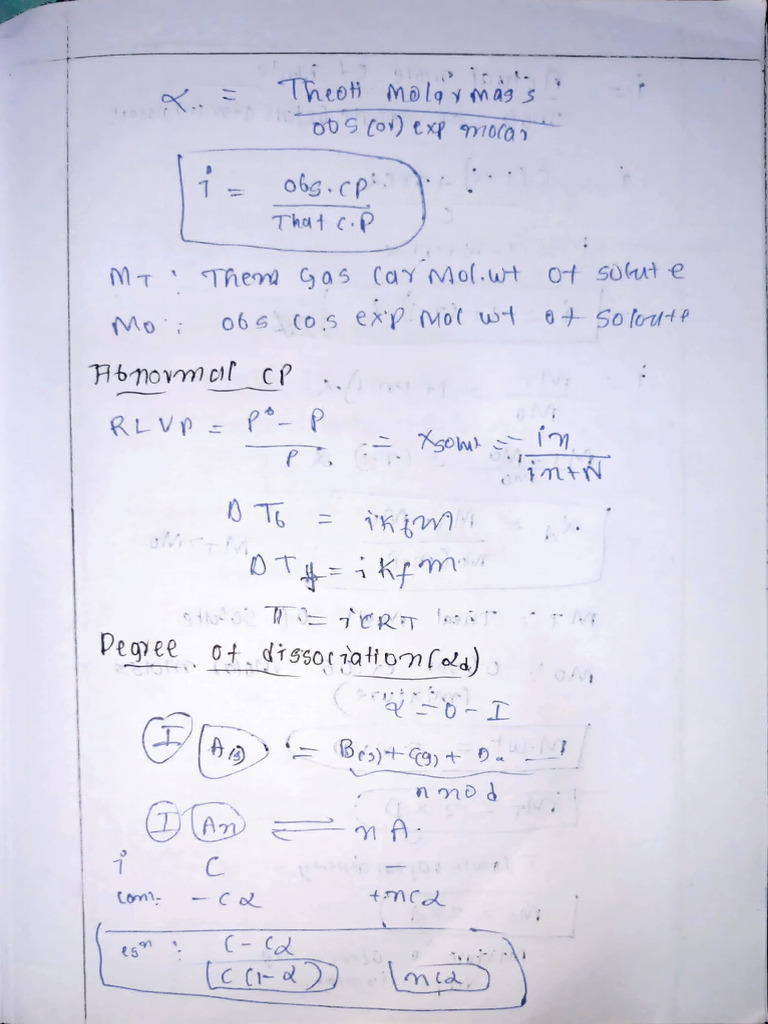 α = Theoti molar mass
obs (or) exp molar
i = obs. CP
That C.P
MT : Thera Gas Car Mol.wt of solute
Mo : obs cos exp Mol wt of soloute
Abnormal CP
RLVP = P° - P
P
= Xsolut = in
in+N
D Tb = i Kb m
D Tf = i Kf m
π = i CRT
Degree of dissociation (αd)
α = 0 - 1
I A(g) = B(g) + C(g) + D
n mod
I An ⇌ n A
i C —
com: - Cα + nCα
esⁿ : C - Cα
C (1 - α) nCα